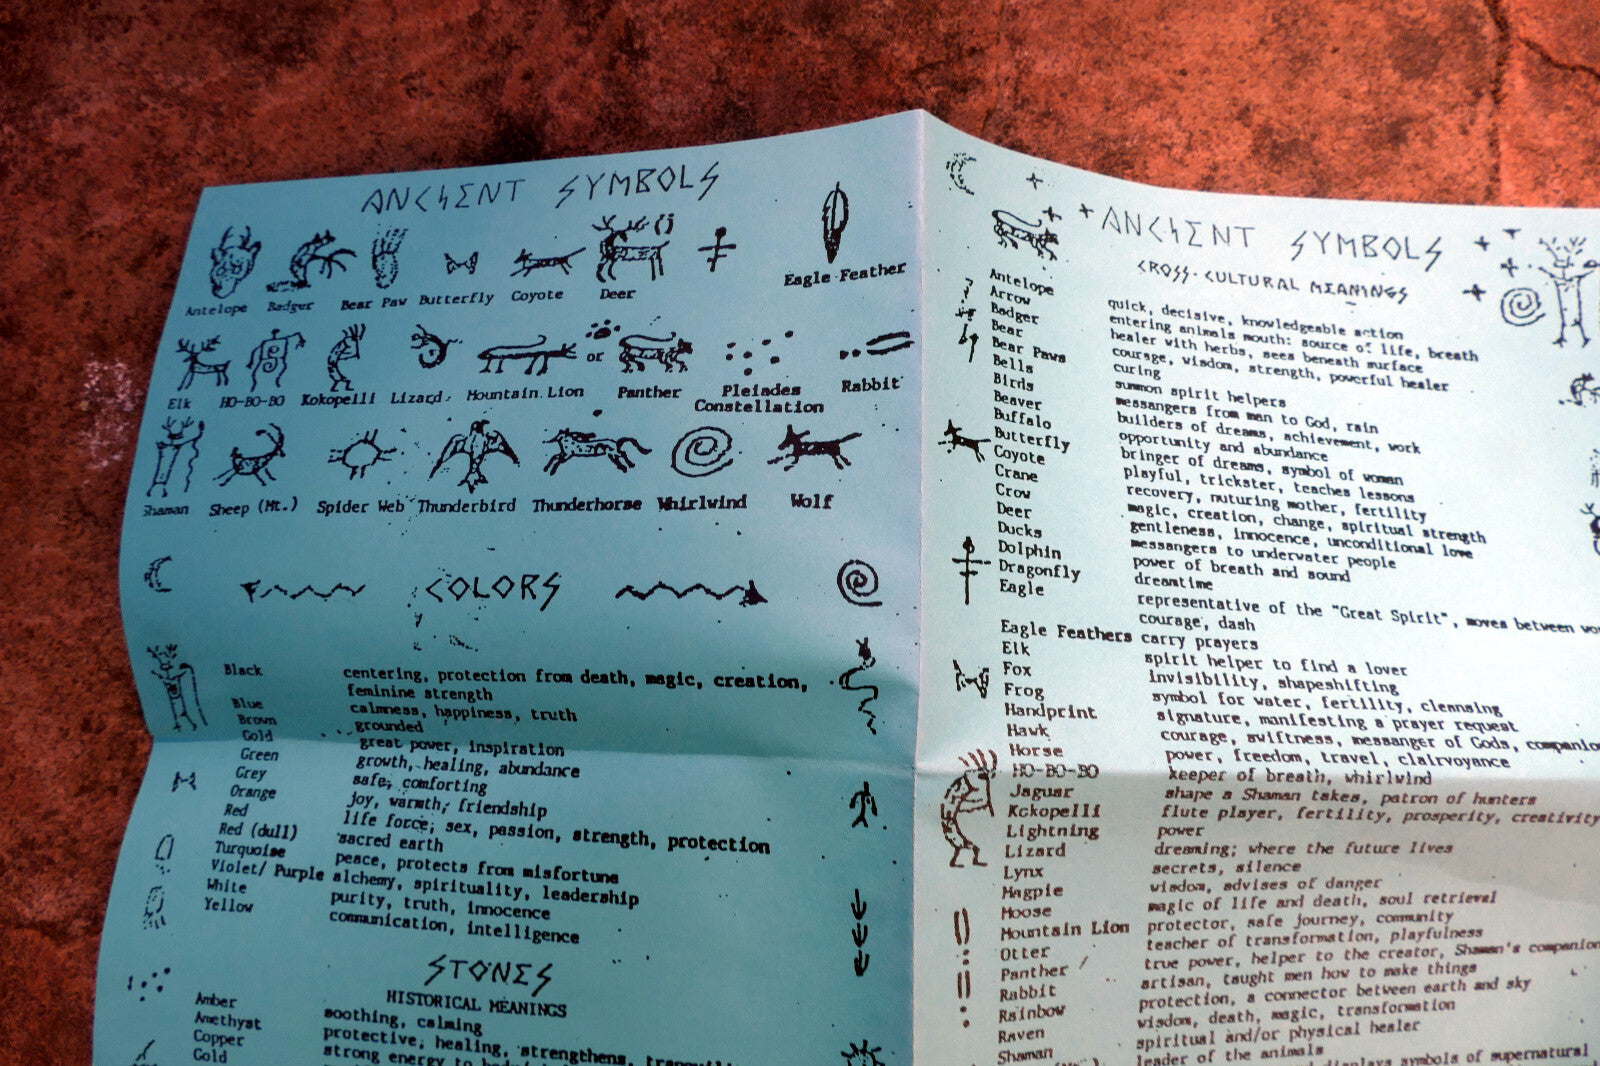 ANCIENT SYMBOLS
Antelope Badger Bear Paw Butterfly Coyote Deer Eagle Feather
Elk HO-BO-BO Kokopelli Lizard Mountain Lion or Panther Pleiades Constellation Rabbit
Shaman Sheep (Mt.) Spider Web Thunderbird Thunderhorse Whirlwind Wolf
COLORS
Black centering, protection from death, magic, creation,
feminine strength
Blue calmness, happiness, truth
Brown grounded
Gold great power, inspiration
Green growth, healing, abundance
Grey safe, comforting
Orange joy, warmth, friendship
Red life force, sex, passion, strength, protection
Red (dull) sacred earth
Turquoise peace, protects from misfortune
Violet/ Purple alchemy, spirituality, leadership
White purity, truth, innocence
Yellow communication, intelligence
STONES
HISTORICAL MEANINGS
Amber soothing, calming
Amethyst protective, healing, strengthens,
Copper strong energy to
Gold
ANCIENT SYMBOLS
CROSS-CULTURAL MEANINGS
Antelope quick, decisive, knowledgeable action
Arrow entering animals mouth: source of life, breath
Badger healer with herbs, sees beneath surface
Bear courage, wisdom, strength, powerful healer
Bear Paws curing
Bells summon spirit helpers
Birds messangers from man to God, rain
Beaver builders of dreams, achievement, work
Buffalo opportunity and abundance
Butterfly bringer of dreams, symbol of woman
Coyote playful, trickster, teaches lessons
Crane recovery, nuturing mother, fertility
Crow magic, creation, change, spiritual strength
Deer gentleness, innocence, unconditional love
Ducks messangers to underwater people
Dolphin power of breath and sound
Dragonfly dreamtime
Eagle representative of the "Great Spirit", moves between
courage, dash
Eagle Feathers carry prayers
Elk spirit helper to find a lover
Fox invisibility, shapeshifting
Frog symbol for water, fertility, cleansing
Handprint signature, manifesting a prayer request
Hawk courage, swiftness, messanger of Gods,
Horse power, freedom, travel, clairvoyance
HO-BO-BO keeper of breath, whirlwind
Jaguar shape a Shaman takes, patron of hunters
Kokopelli flute player, fertility, prosperity, creativity
Lightning power
Lizard dreaming; where the future lives
Lynx secrets, silence
Magpie wisdom, advises of danger
Moose magic of life and death, soul retrieval
Mountain Lion protector, safe journey, community
Otter teacher of transformation, playfulness
Panther true power, helper to the creator, Shaman's companion
Rabbit artisan, taught men how to make things
Rainbow protection, a connector between earth and sky
Raven wisdom, death, magic, transformation
Shaman spiritual and/or physical healer
leader of the animals
displays symbols of supernatural